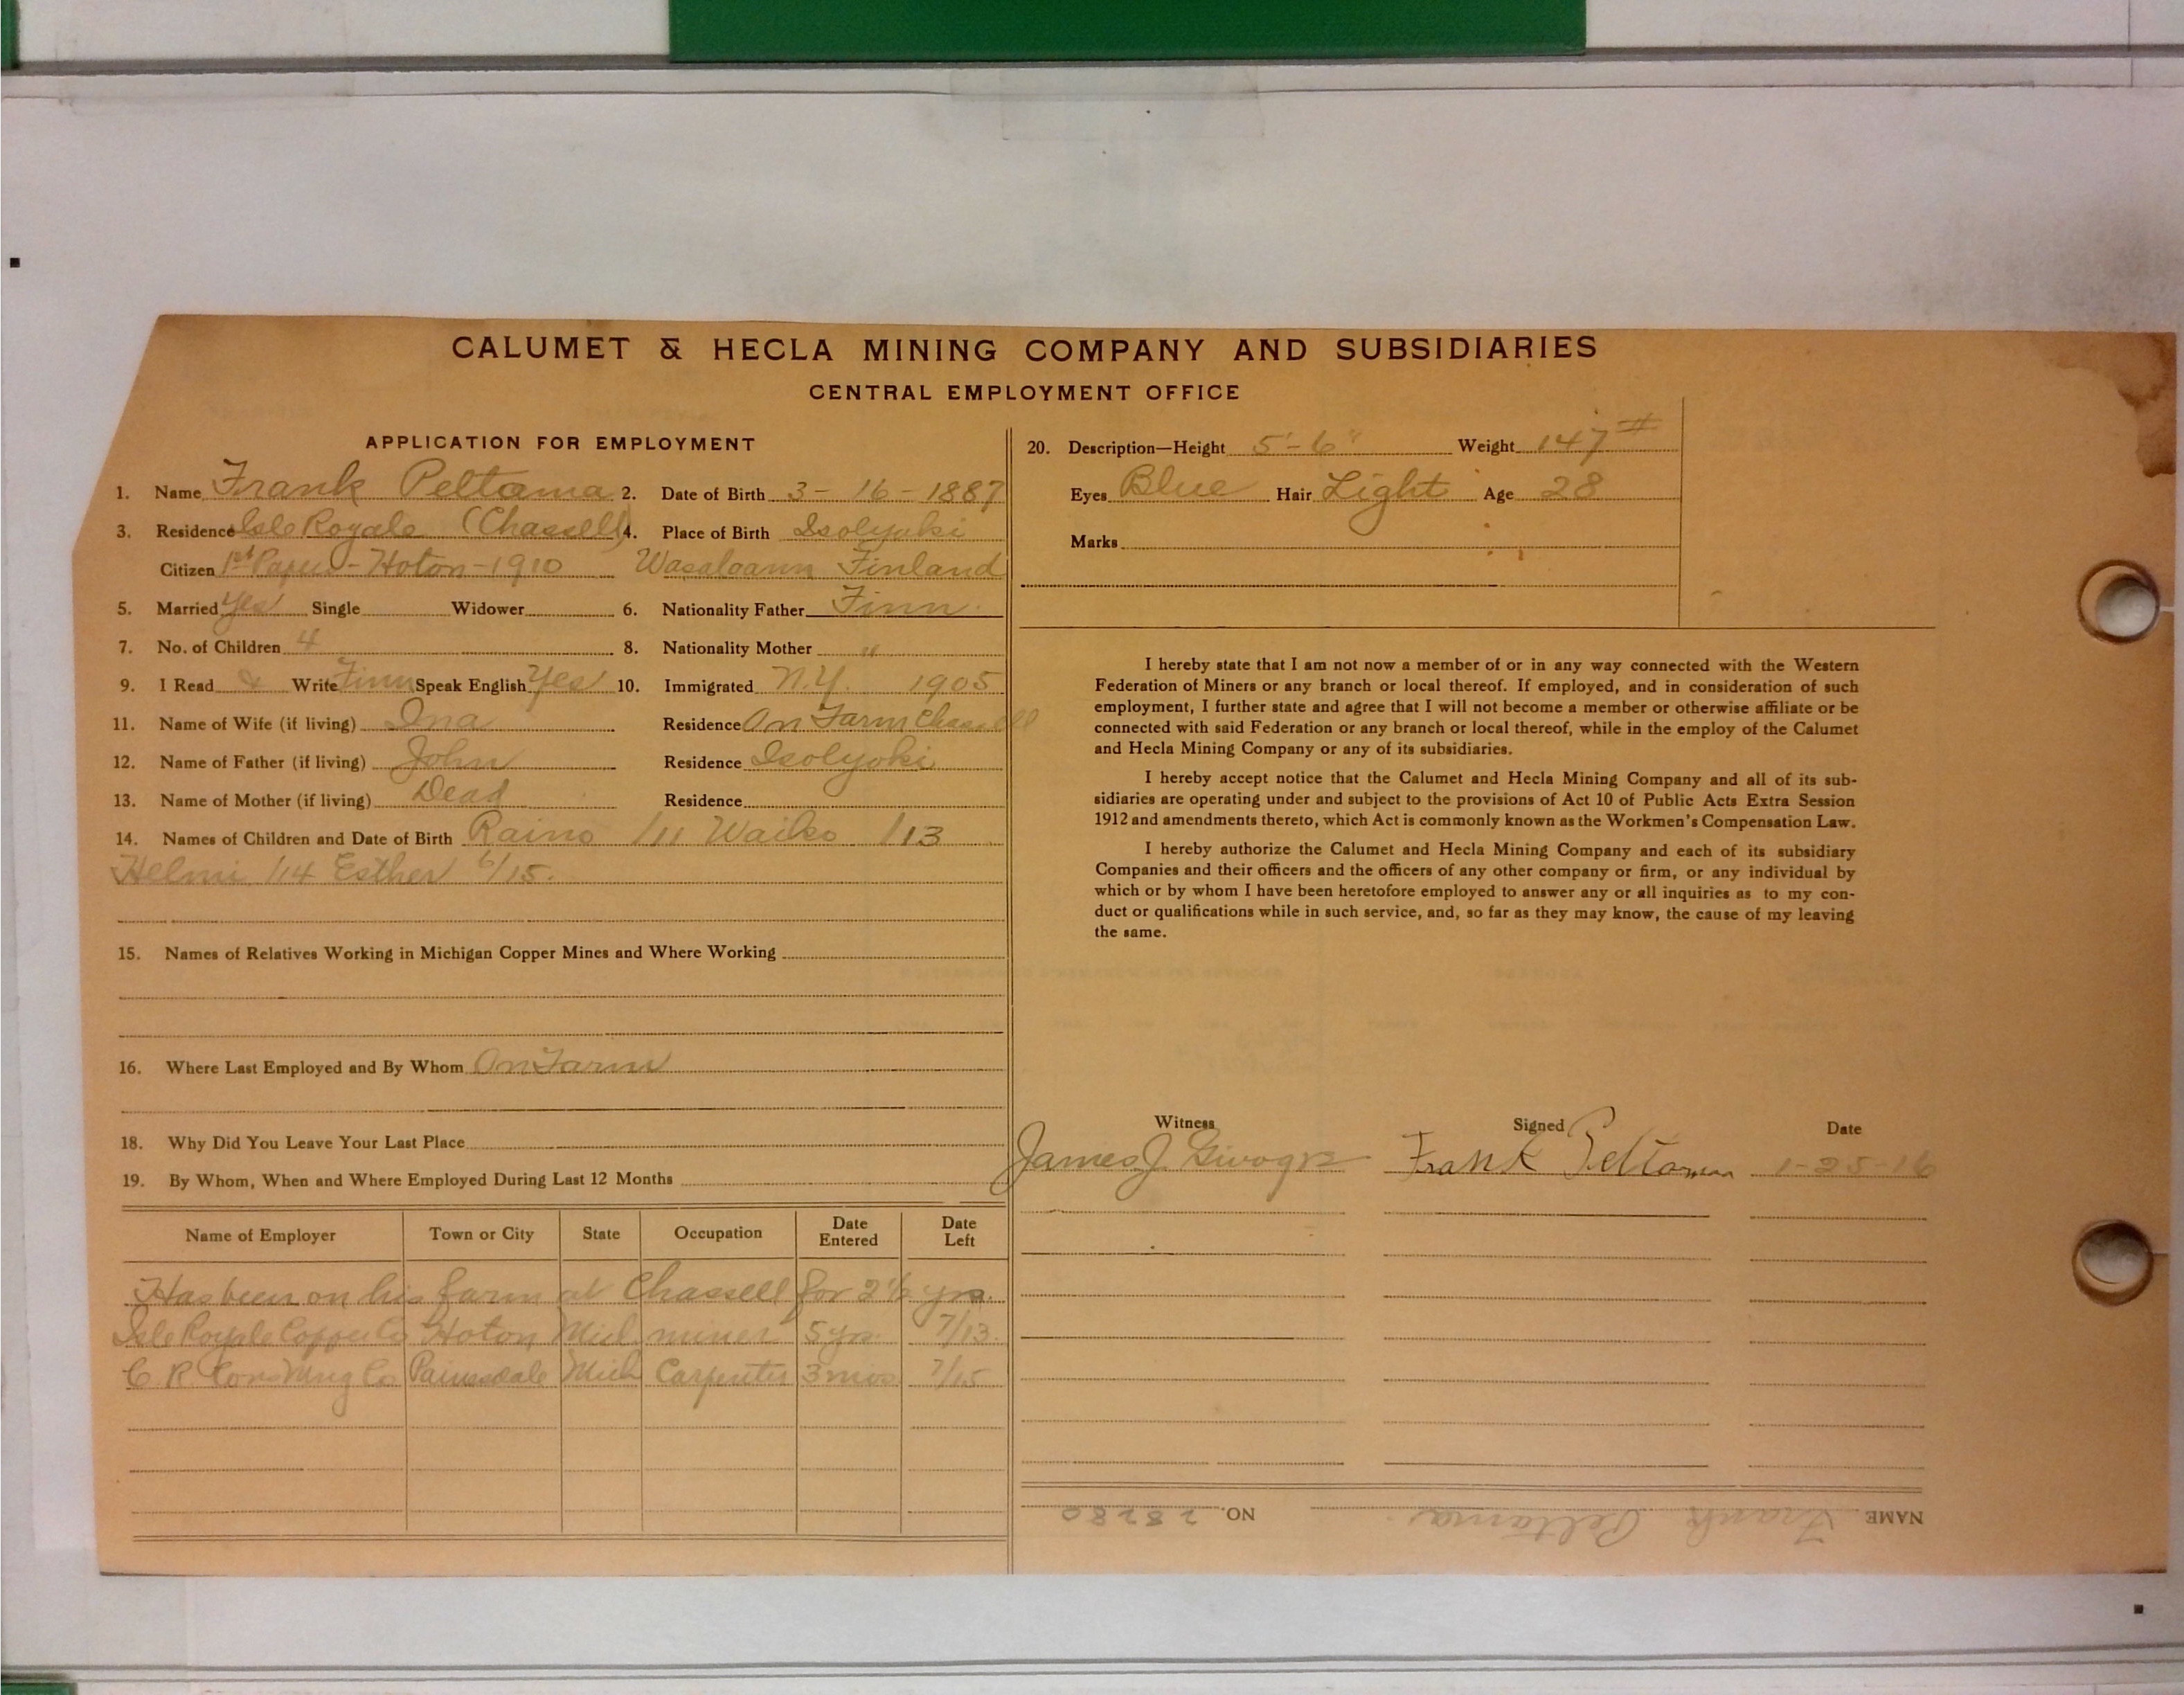 CALUMET & HECLA MINING COMPANY AND SUBSIDIARIES
CENTRAL EMPLOYMENT OFFICE
APPLICATION FOR EMPLOYMENT
1. Name Frank Peltama 2. Date of Birth 3-16-1887
3. Residence Isle Royale (Chassell) 4. Place of Birth Isolyoki
Citizen 1st Paper - Hoton - 1910 Wasalaann Finland
5. Married Yes Single Widower 6. Nationality Father Finn
7. No. of Children 4 8. Nationality Mother "
9. I Read & Write Finn Speak English Yes 10. Immigrated N.Y. 1905
11. Name of Wife (if living) Ina Residence On Farm Chassell
12. Name of Father (if living) John Residence Isolyoki
13. Name of Mother (if living) Dead Residence
14. Names of Children and Date of Birth Raino /11 Waiko /13
Helmi /14 Esther 6/15.
15. Names of Relatives Working in Michigan Copper Mines and Where Working
16. Where Last Employed and By Whom On Farm
18. Why Did You Leave Your Last Place
19. By Whom, When and Where Employed During Last 12 Months
Name of Employer Town or City State Occupation Date Entered Date Left
Has been on his farm at Chassell for 2 1/2 yrs.
Isle Royale Copper Co Hoton Mich miner 5 yrs. 7/13.
C. R. Cons Mng Co Painesdale Mich Carpenter 3 mos 7/15
20. Description—Height 5'-6" Weight 147#
Eyes Blue Hair Light Age 28
Marks
I hereby state that I am not now a member of or in any way connected with the Western
Federation of Miners or any branch or local thereof. If employed, and in consideration of such
employment, I further state and agree that I will not become a member or otherwise affiliate or be
connected with said Federation or any branch or local thereof, while in the employ of the Calumet
and Hecla Mining Company or any of its subsidiaries.
I hereby accept notice that the Calumet and Hecla Mining Company and all of its sub-
sidiaries are operating under and subject to the provisions of Act 10 of Public Acts Extra Session
1912 and amendments thereto, which Act is commonly known as the Workmen's Compensation Law.
I hereby authorize the Calumet and Hecla Mining Company and each of its subsidiary
Companies and their officers and the officers of any other company or firm, or any individual by
which or by whom I have been heretofore employed to answer any or all inquiries as to my con-
duct or qualifications while in such service, and, so far as they may know, the cause of my leaving
the same.
Witness Signed Date
James J. Frank Peltama 1-25-16
NAME Frank Peltama. NO. 28280